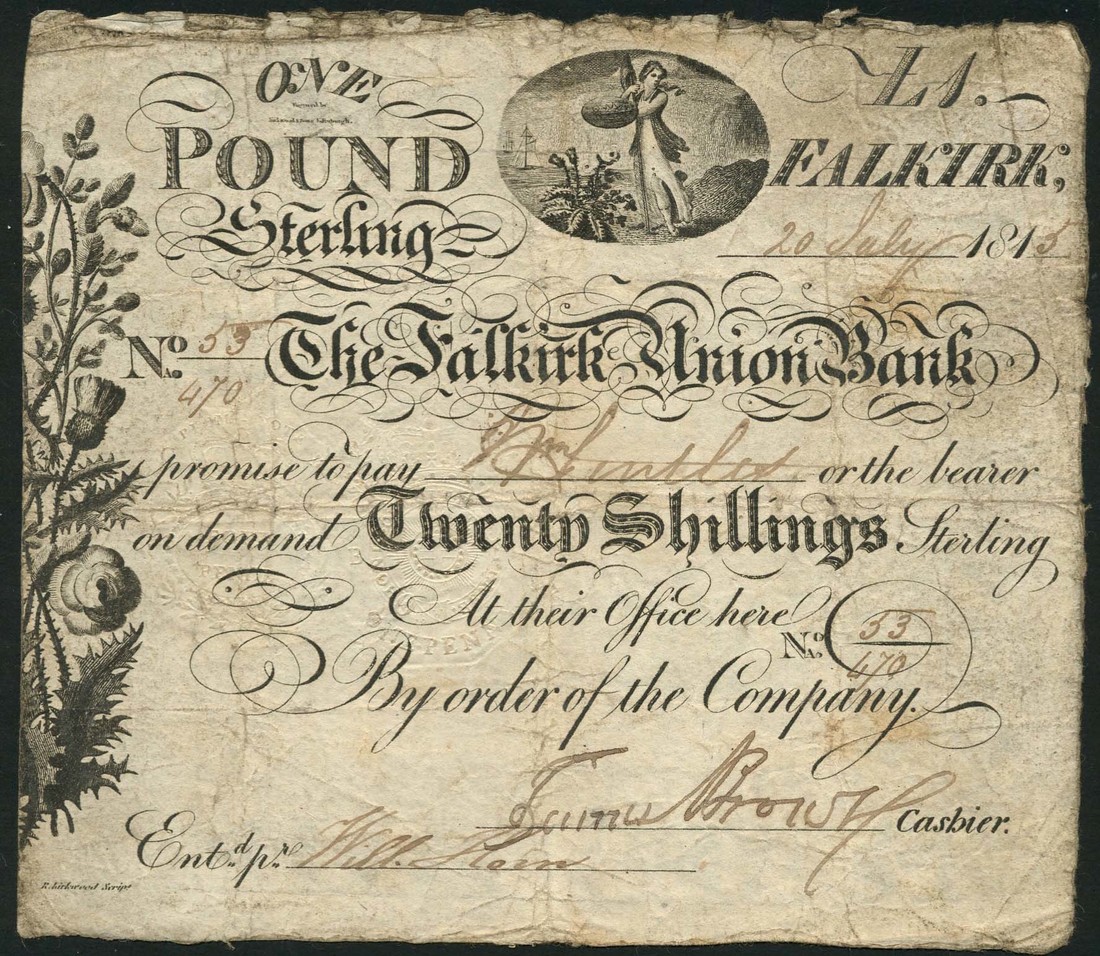 ONE
Kirkwood & Sons Edinburgh.
POUND
Sterling
£1.
FALKIRK,
20 July 1815
No. 53
470
The Falkirk Union Bank
promise to pay or the bearer
on demand Twenty Shillings Sterling
At their Office here
No. 53
470
By order of the Company.
James Brown Cashier.
Entd. pr. Will.
R. Kirkwood Script